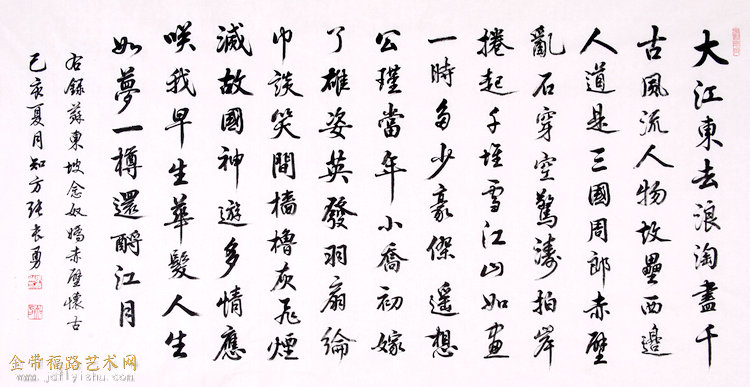 大江東去浪淘盡千
古風流人物故壘西邊
人道是三國周郎赤壁
亂石穿空驚濤拍岸
捲起千堆雪江山如畫
一時多少豪傑遥想
公瑾當年小喬初嫁
了雄姿英發羽扇綸
巾談笑間檣櫓灰飛煙
滅故國神遊多情應
咲我早生華髮人生
如夢一樽還酹江月
右錄蘇東坡念奴嬌赤壁懷古
己亥夏月知方張長勇
金带福路艺术网
www.jdflyishu.com